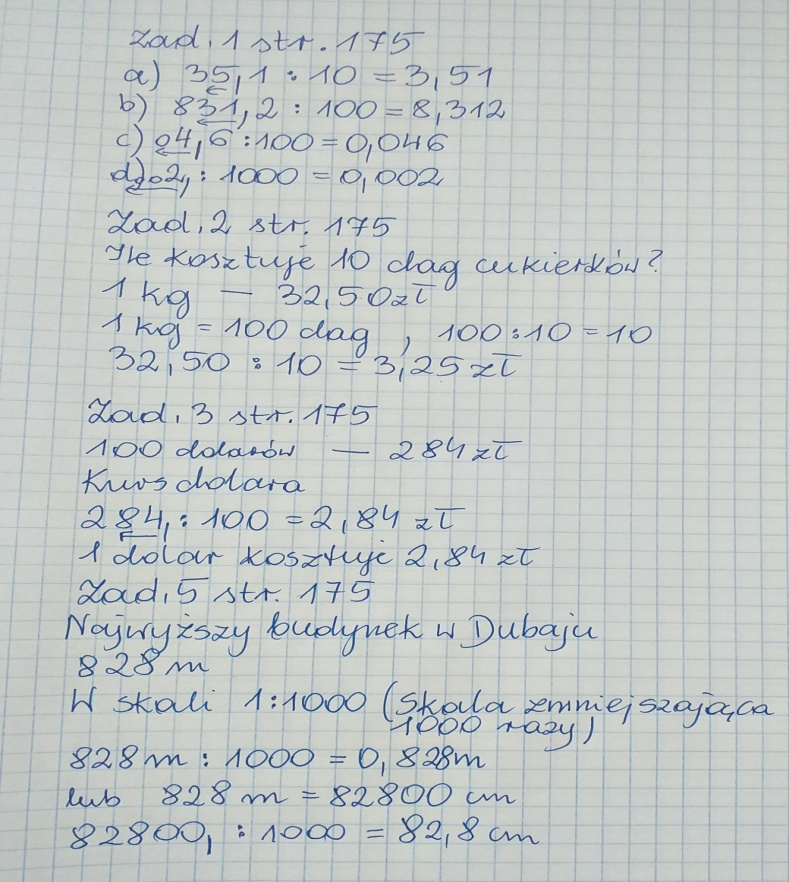 Zad. 1 str. 175
a) 35,1 : 10 = 3,51
b) 831,2 : 100 = 8,312
c) 04,6 : 100 = 0,046
d) 002, : 1000 = 0,002
Zad. 2 str. 175
Ile kosztuje 10 dag cukierków?
1 kg — 32,50 zł
1 kg = 100 dag , 100 : 10 = 10
32,50 : 10 = 3,25 zł
Zad. 3 str. 175
100 dolarów — 284 zł
Kurs dolara
284, : 100 = 2,84 zł
1 dolar kosztuje 2,84 zł
Zad. 5 str. 175
Najwyższy budynek w Dubaju
828 m
W skali 1:1000 (Skala zmniejszająca
1000 razy)
828 m : 1000 = 0,828 m
lub 828 m = 82800 cm
82800, : 1000 = 82,8 cm